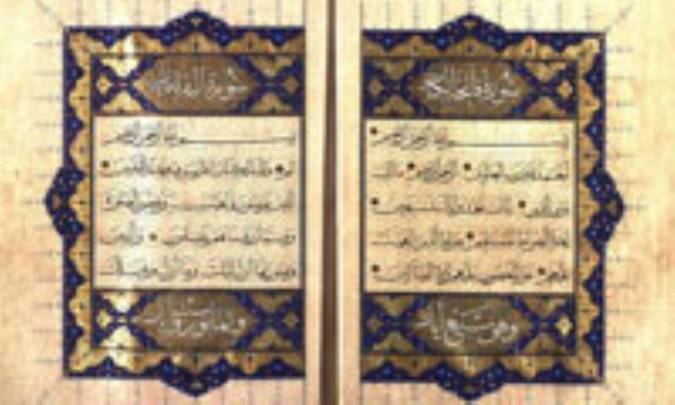 سورة فاتحة الكتاب
بسم الله الرحمن الرحيم
الحمد لله رب العالمين الرحمن الرحيم مالك
يوم الدين اياك نعبد واياك نستعين
اهدنا الصراط المستقيم صراط الذين انعمت
عليهم غير المغضوب عليهم ولا الضالين
وهي سبع آيات
سورة البقرة
بسم الله الرحمن الرحيم
الم ذلك الكتاب لا ريب فيه هدى للمتقين
الذين يؤمنون بالغيب ويقيمون الصلوة
ومما رزقناهم ينفقون والذين
يؤمنون بما انزل اليك وما انزل من قبلك